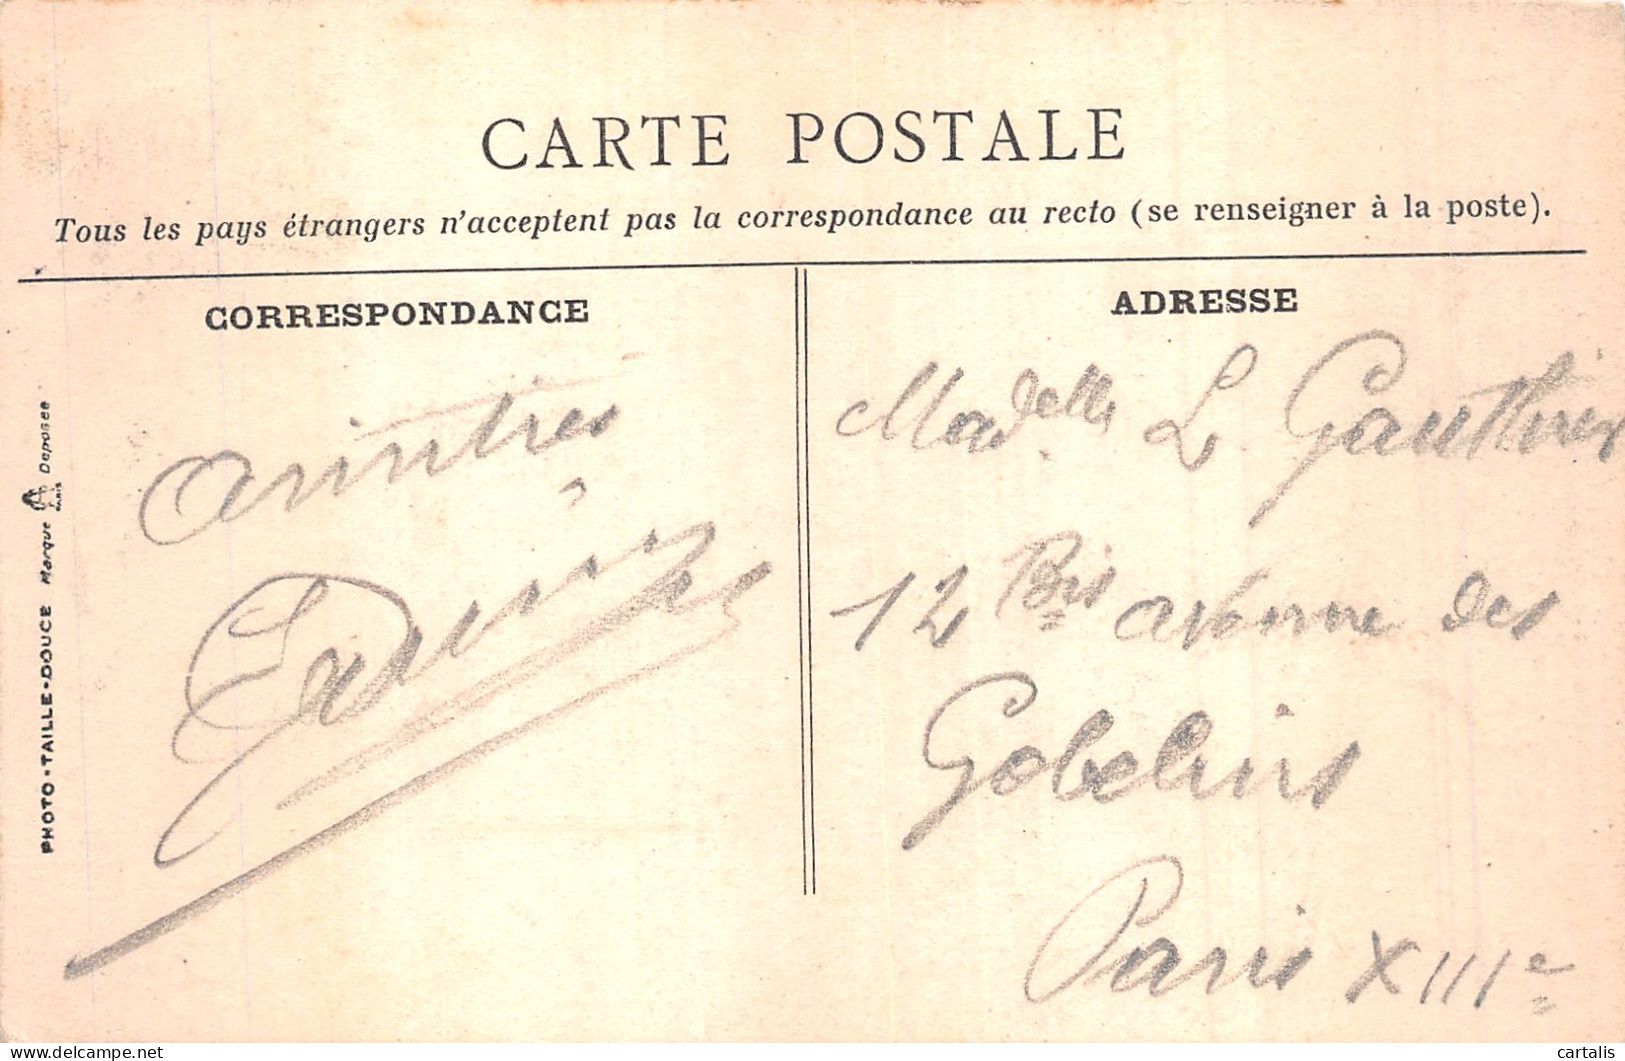 CARTE POSTALE
Tous les pays étrangers n'acceptent pas la correspondance au recto (se renseigner à la poste).
CORRESPONDANCE
amitiés
PHOTO-TAILLE-DOUCE Marque A PARIS Déposée
ADRESSE
Madelle L Gauthier
12 Bis avenue des
Gobelins
Paris XIIIe
cartalis
delcampe.net